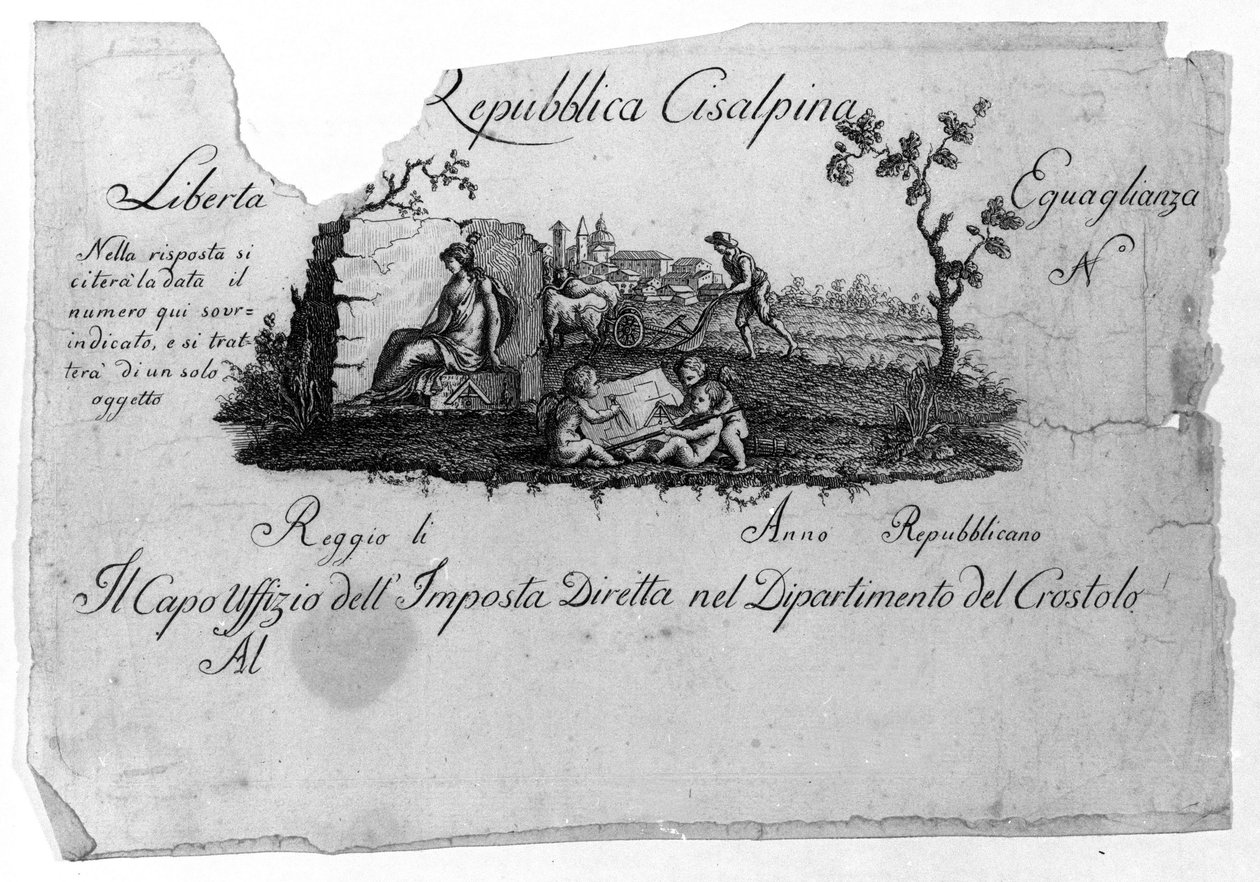 Repubblica Cisalpina
Libertà
Eguaglianza
Nella risposta si
citerà la data il
numero qui sovr=
indicato, e si trat-
terà di un solo
oggetto
N°
Reggio li
Anno Repubblicano
Il Capo Uffizio dell' Imposta Diretta nel Dipartimento del Crostolo
Al